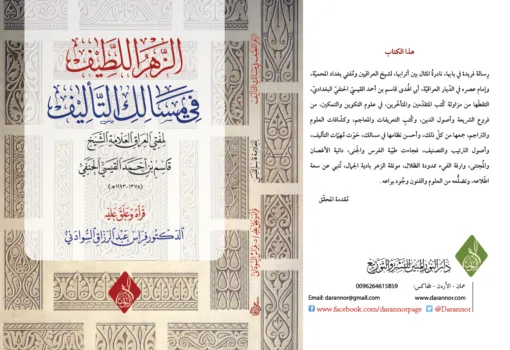 الزهر اللطيف
في مسالك التأليف
لمفتي العراق العلامة الشيخ
قاسم بن أحمد القيسي الحنفي
(١٣٧٥هـ)
قرأه وعلق عليه
الدكتور فراس عبد الرزاق السوداني
هذا الكتاب
رسالة فريدة في بابها، نادرة المثال بين أترابها، لشيخ العراقيين ومفتي بغداد المحمية،
وإمام عصره في الديار العراقية، أبي الهدى قاسم بن أحمد القيسي الحنفي البغدادي،
التقطها من مزاولة كتب المتقدمين والمتأخرين، في علوم التكوين والتمكين، من
فروع الشريعة وأصول الدين، وكتب التعريفات والمعاجم، وكشافات العلوم
والتراجم، جمعها من كل ذلك، وأحسن نظامها في مسالك، حوت مهمات التأليف،
وأصول الترتيب والتصنيف، فجاءت طيبة الغرس والجنى، دانية الأغصان
والمجتنى، وارفة الفيء ممدودة الظلال، مونقة الزهر بادية الجمال، تنبي عن سعة
اطلاعه، وتضلعه من العلوم والفنون وجود يراعه.
مقدمة المحقق
دار النور المبين للنشر والتوزيع
عمان - الأردن - فاكس: 0096264615859
Email: darannor@gmail.com www.darannor.com
www.facebook.com/darannorpage @Darannor